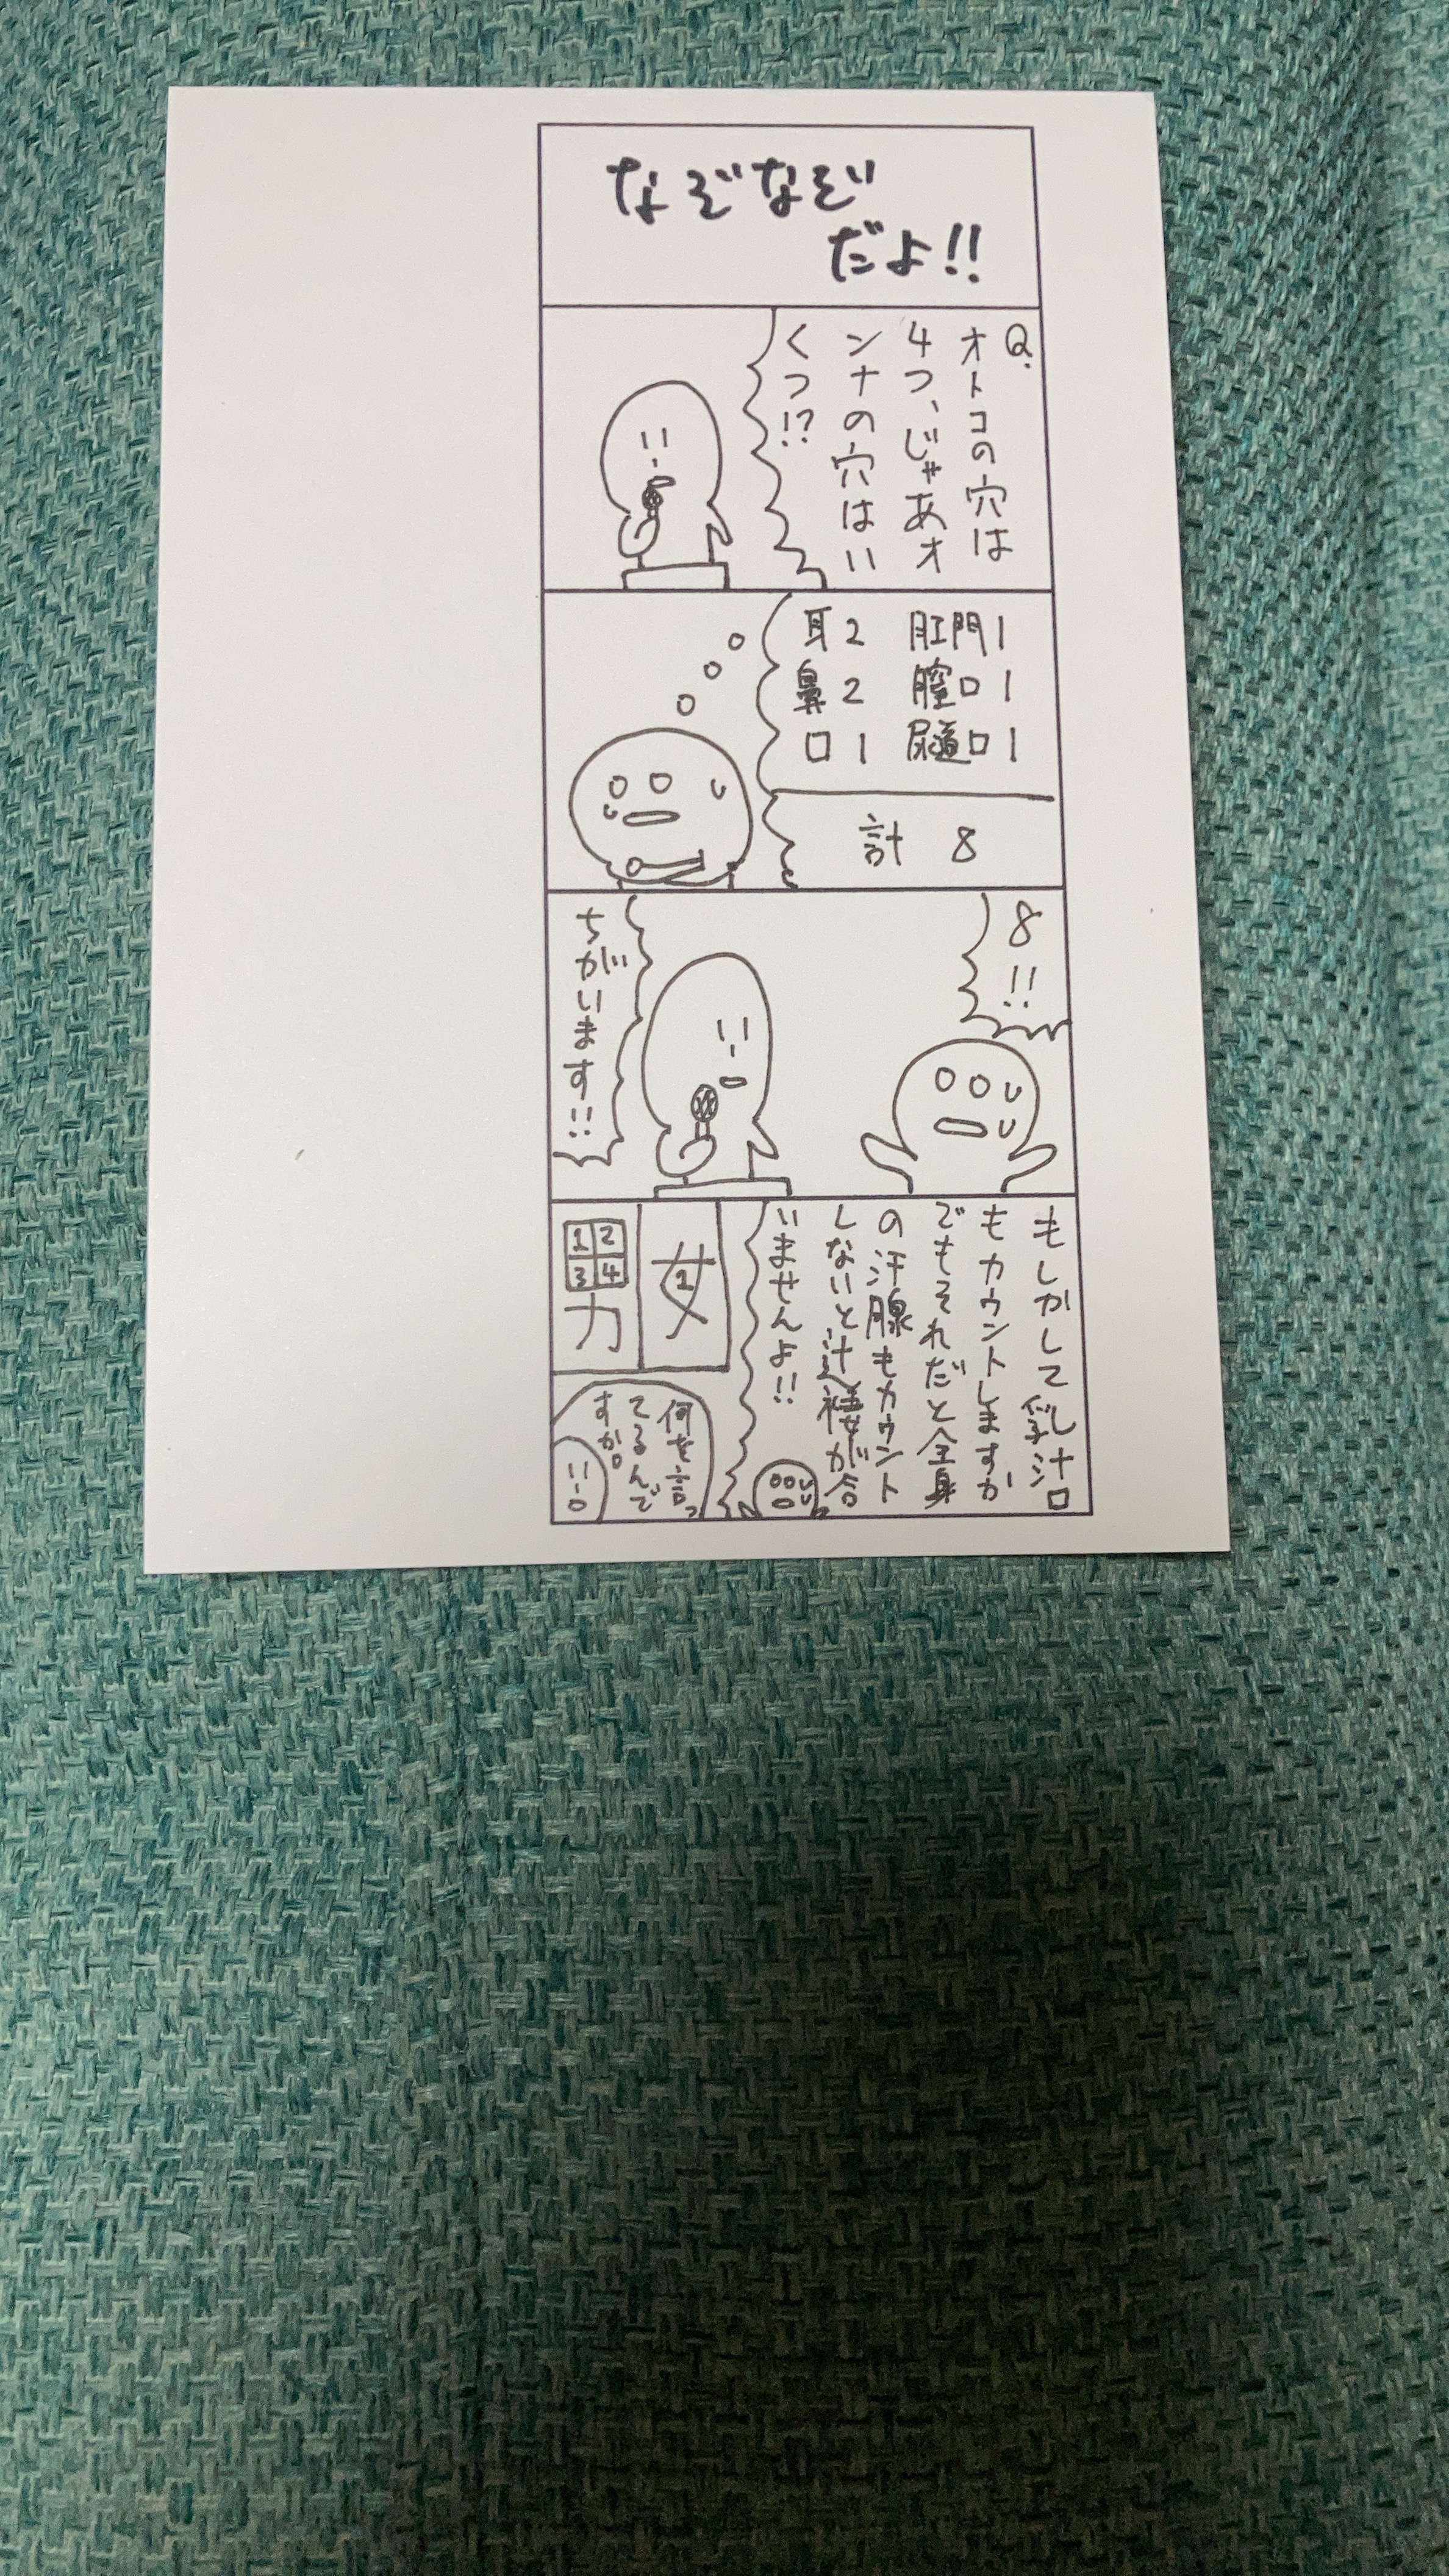 なぞなぞ
だよ!!
Q.
オトコの穴は
4つ、じゃあオ
ンナの穴はい
くつ!?
耳2 肛門1
鼻2 膣口1
口1 尿道口1
計 8
8!!
ちがいます!!
もしかして乳汁口
もカウントしますか
でもそれだと全身
の汗腺もカウント
しないと辻褄が合
いませんよ!!
女
1
男
1 2
3 4
何を言っ
てるんで
すか。